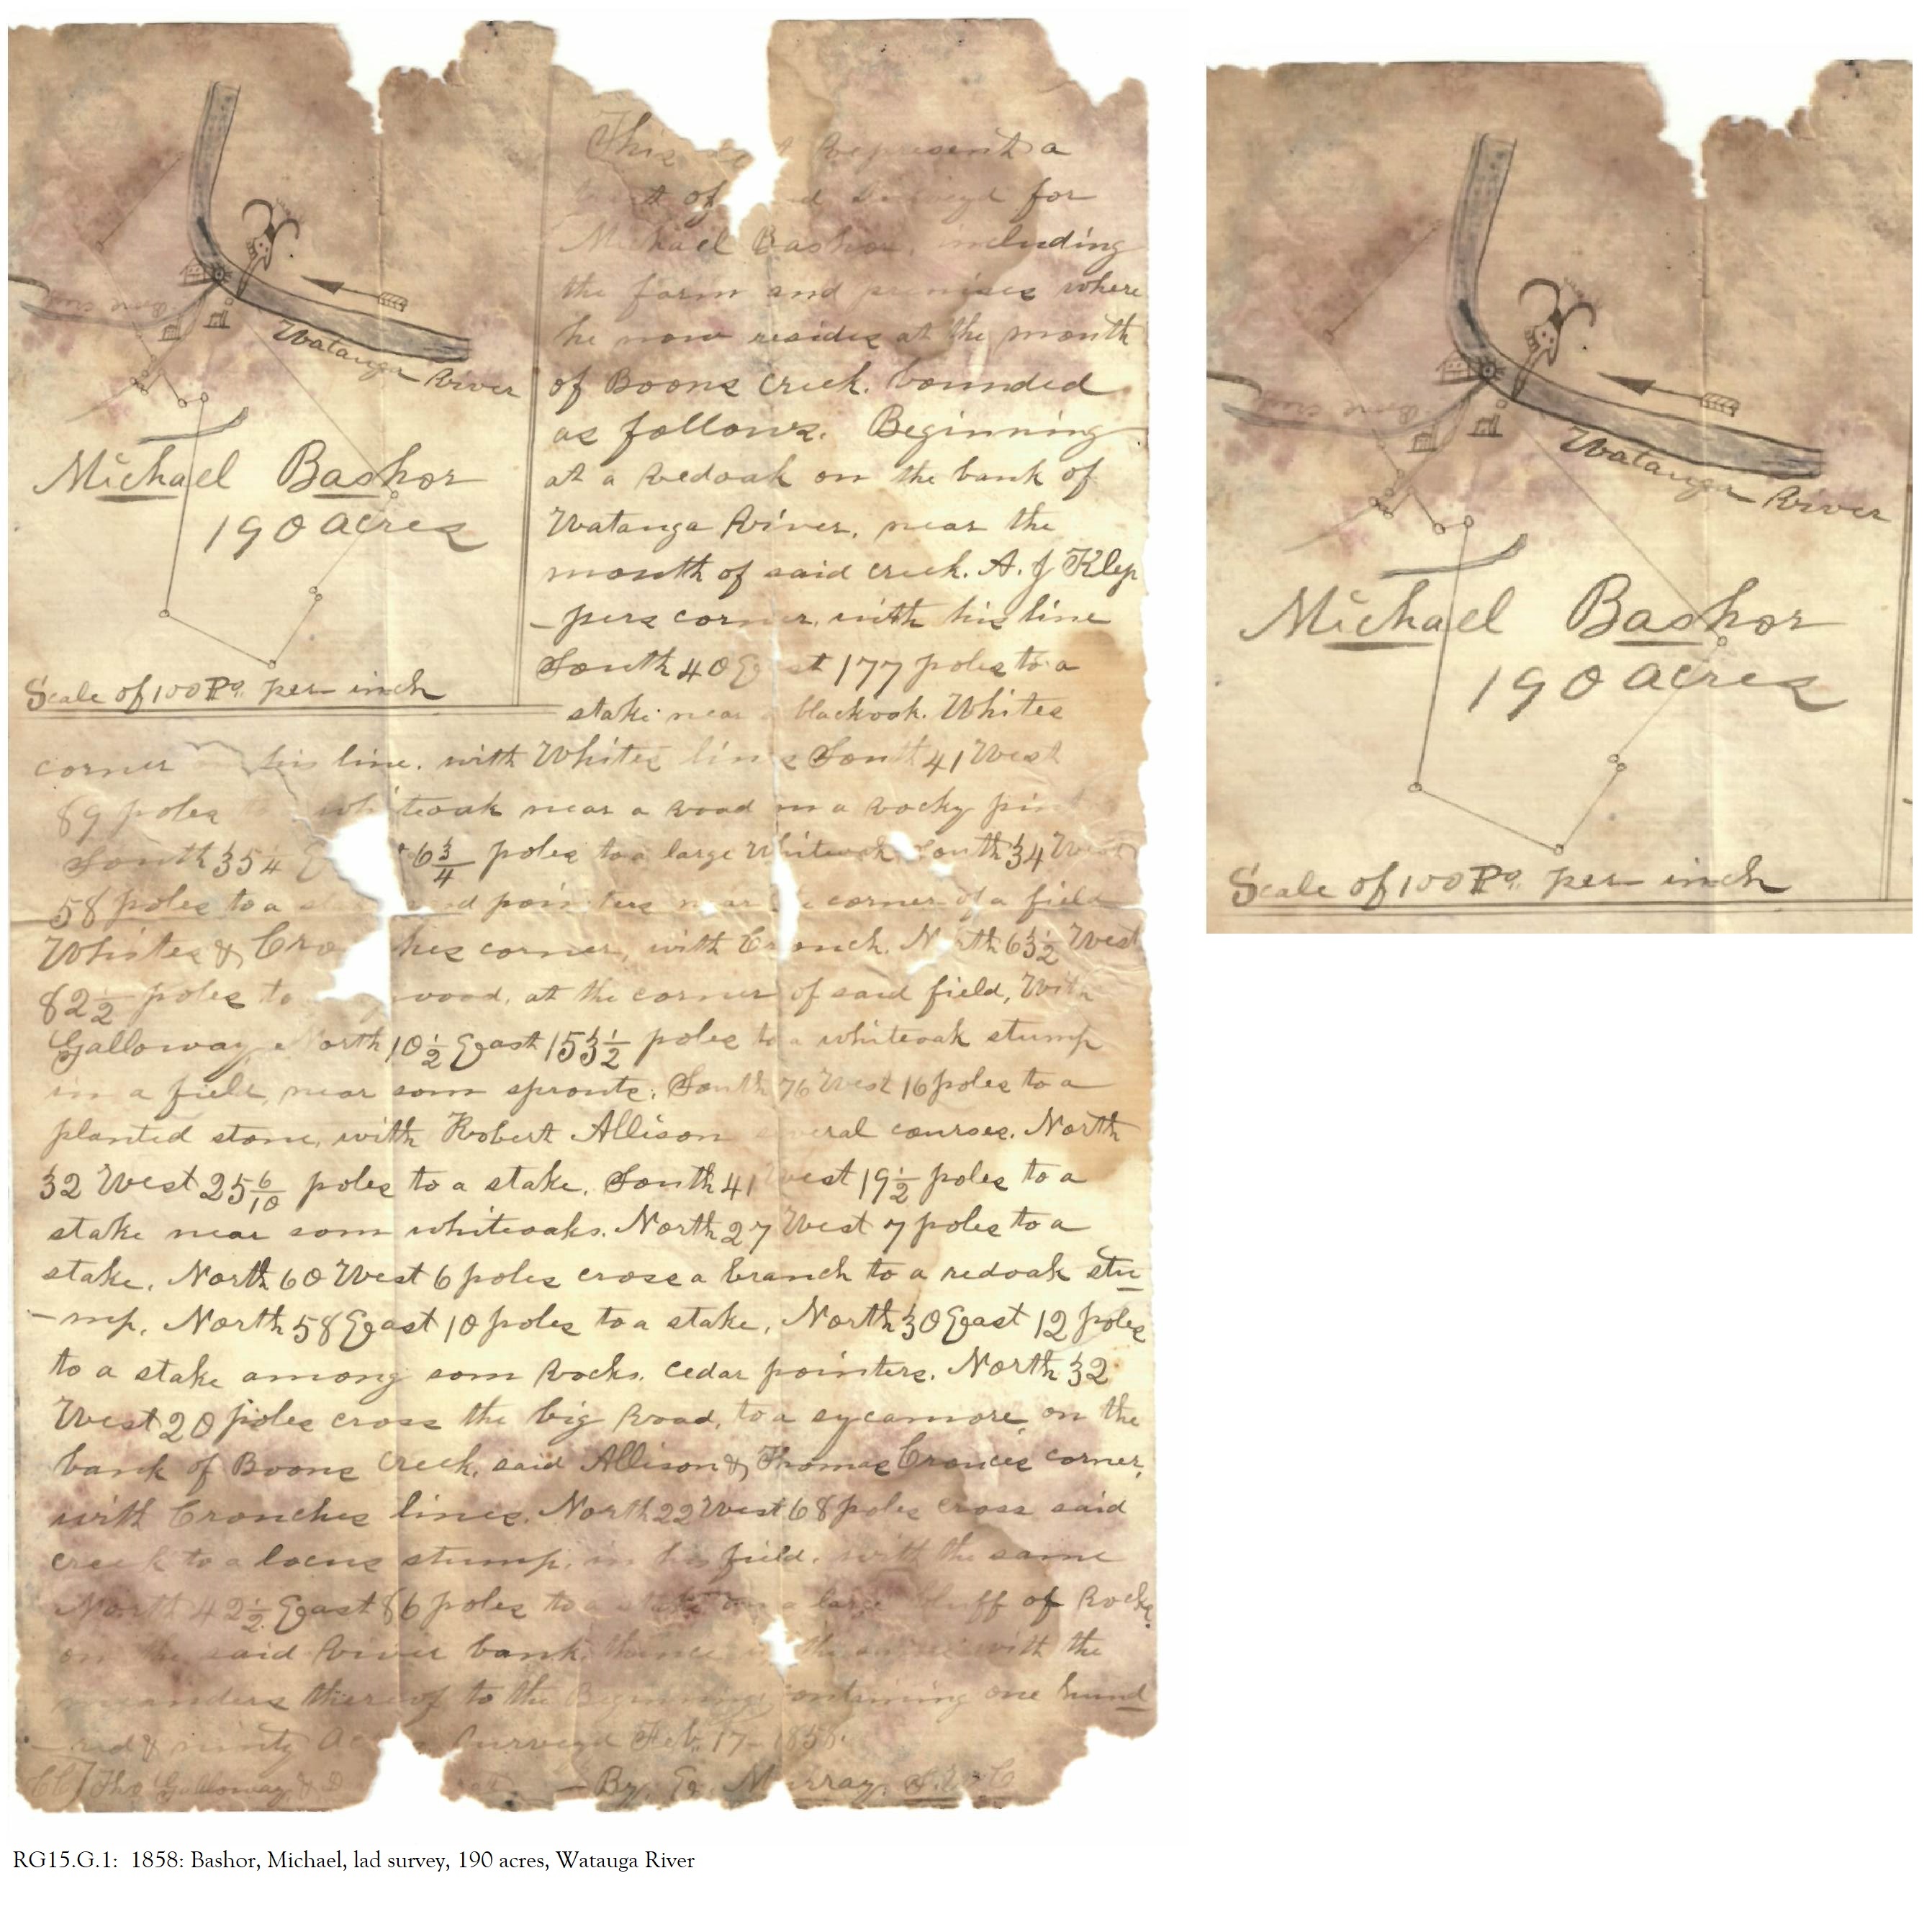 This represent a
of for
Michael Bashor, including
the farm and premises where
he now resides at the mouth
of Boons Creek. bounded
as follows. Beginning
at a Redoak on the bank of
Watauga River, near the
mouth of said creek. A. J Klep
-pers corner, with his line
South 40 E st 177 poles to a
stake near a blackoak. Whites
Boons Creek
Watauga River
Michael Bashor
190 acres
Scale of 100 Po. per inch
corner his line. with Whites lines South 41 West
89 poles whiteoak near a road on a rocky
South 35 4 6 3/4 poles to a large Whiteoak South 34 West
58 poles to a and pointers near corner of a field
Whites & Cro hes corner, with Cr ouch. North 63 1/2 West
82 1/2 poles to wood, at the corner of said field, With
Galloway North 10 1/2 East 153 1/2 poles to a whiteoak stump
in a field, near som sprouts. South 76 West 16 poles to a
planted stone, with Robert Allison several courses. North
32 West 25 6/10 poles to a stake. South 41 West 19 1/2 poles to a
stake near som whiteoaks. North 27 West 7 poles to a
stake. North 60 West 6 poles cross a branch to a redoak stu
-mp. North 58 East 10 poles to a stake, North 30 East 12 poles
to a stake among som Rocks. cedar pointers. North 32
West 20 poles cross the big Road, to a sycamore on the
bank of Boons Creek, said Allison & Thomas corner,
with Crouches lines. North 22 West 68 poles cross said
creek to a locus stump, in his field. with the same
North 42 1/2 East 86 poles to a stake on a large bluff of Rocks
on the said River bank. thence the with the
meanders thereof to the Beginning containing one hund
-red & ninty Ac Surveyd Feb. 17- 1858.
CC] Tho Galloway & D
- By. E. Murray, S. W C
Boons Creek
Watauga River
Michael Bashor
190 acres
Scale of 100 Po. per inch
RG15.G.1: 1858: Bashor, Michael, lad survey, 190 acres, Watauga River